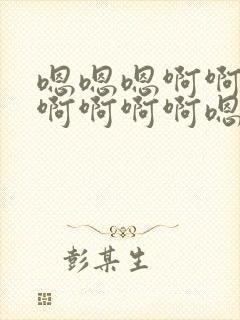 嗯嗯嗯啊啊
啊啊啊啊嗯
彭某生